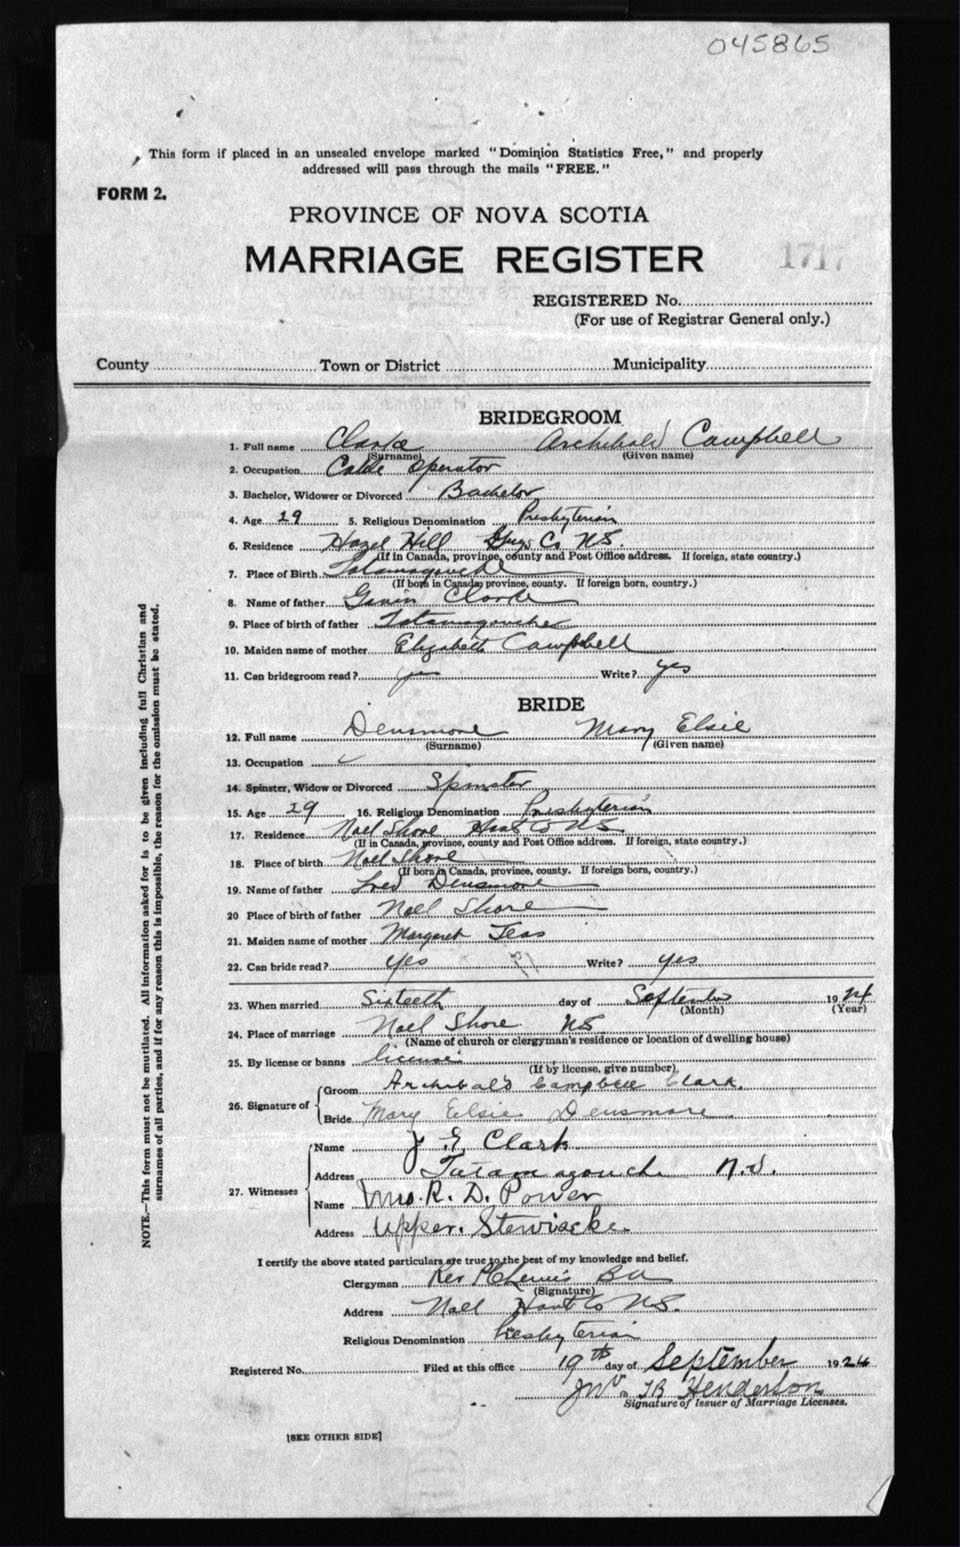 045865
This form if placed in an unsealed envelope marked "Dominion Statistics Free," and properly
addressed will pass through the mails "FREE."
FORM 2.
PROVINCE OF NOVA SCOTIA
MARRIAGE REGISTER 1717
REGISTERED No.
(For use of Registrar General only.)
County Town or District Municipality
BRIDEGROOM
1. Full name Clarke Archibald Campbell
(Surname) (Given name)
2. Occupation Cable Operator
3. Bachelor, Widower or Divorced Bachelor
4. Age 29 5. Religious Denomination Presbyterian
6. Residence Hazel Hill Guys Co NS.
(If in Canada, province, county and Post Office address. If foreign, state country.)
7. Place of Birth Tatamagouche
(If born in Canada, province, county. If foreign born, country.)
8. Name of father Gavin Clarke
9. Place of birth of father Tatamagouche
10. Maiden name of mother Elizabeth Campbell
11. Can bridegroom read? yes Write? yes
BRIDE
12. Full name Densmore Mary Elsie
(Surname) (Given name)
13. Occupation
14. Spinster, Widow or Divorced Spinster
15. Age 29 16. Religious Denomination Presbyterian
17. Residence Noel Shore Hants Co NS
(If in Canada, province, county and Post Office address. If foreign, state country.)
18. Place of birth Noel Shore
(If born in Canada, province, county. If foreign born, country.)
19. Name of father Fred Densmore
20 Place of birth of father Noel Shore
21. Maiden name of mother Margaret Teas
22. Can bride read? yes Write? yes
23. When married Sixteeth day of September 1924
(Month) (Year)
24. Place of marriage Noel Shore NS
(Name of church or clergyman's residence or location of dwelling house)
25. By license or banns license
(If by license, give number)
26. Signature of Groom Archibald Campbell Clark.
Bride Mary Elsie Densmore
27. Witnesses Name J. E. Clark
Address Tatamagouche N.S.
Name Mrs. R. D. Power
Address Upper. Stewiacke
I certify the above stated particulars are true to the best of my knowledge and belief.
Clergyman Rev Lewis BA
(Signature)
Address Noel Hants Co NS.
Religious Denomination Presbyterian
Registered No. Filed at this office 19th day of September 1924
Henderson
Signature of Issuer of Marriage Licenses.
[SEE OTHER SIDE]
NOTE.—This form must not be mutilated. All information asked for is to be given including full Christian and
surnames of all parties, and if for any reason this is impossible, the reason for the omission must be stated.